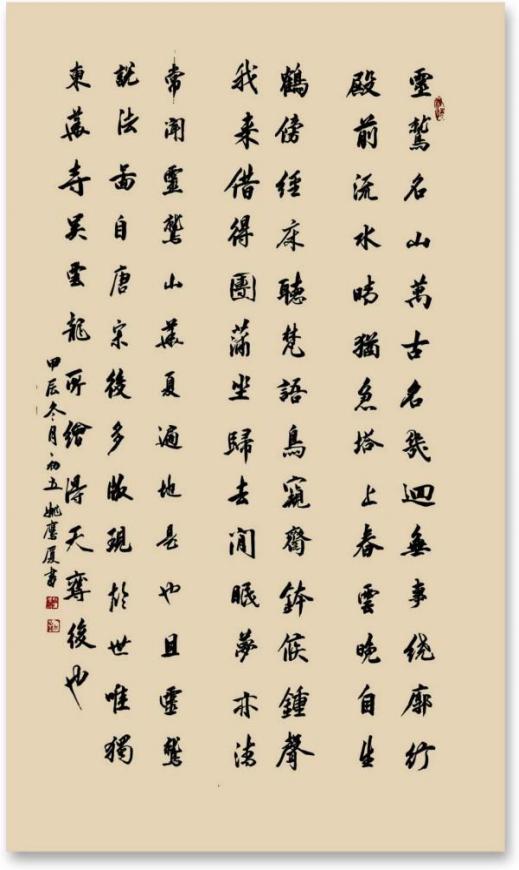 靈鷲名山萬古名飛迴無事绕廓行
殿前流水晴猶急塔上春雲晚自生
鶴傍经床聽梵語鳥窺齋鉢候鍾聲
我来借得團蒲坐歸去閒眠夢亦清
常聞靈鷲山華夏遍地是也且靈鷲
說法圖自唐宋後多版現於世唯獨
東華寺吴雲龍所繪得天齊後也
甲辰冬月初五姚鷹厦書